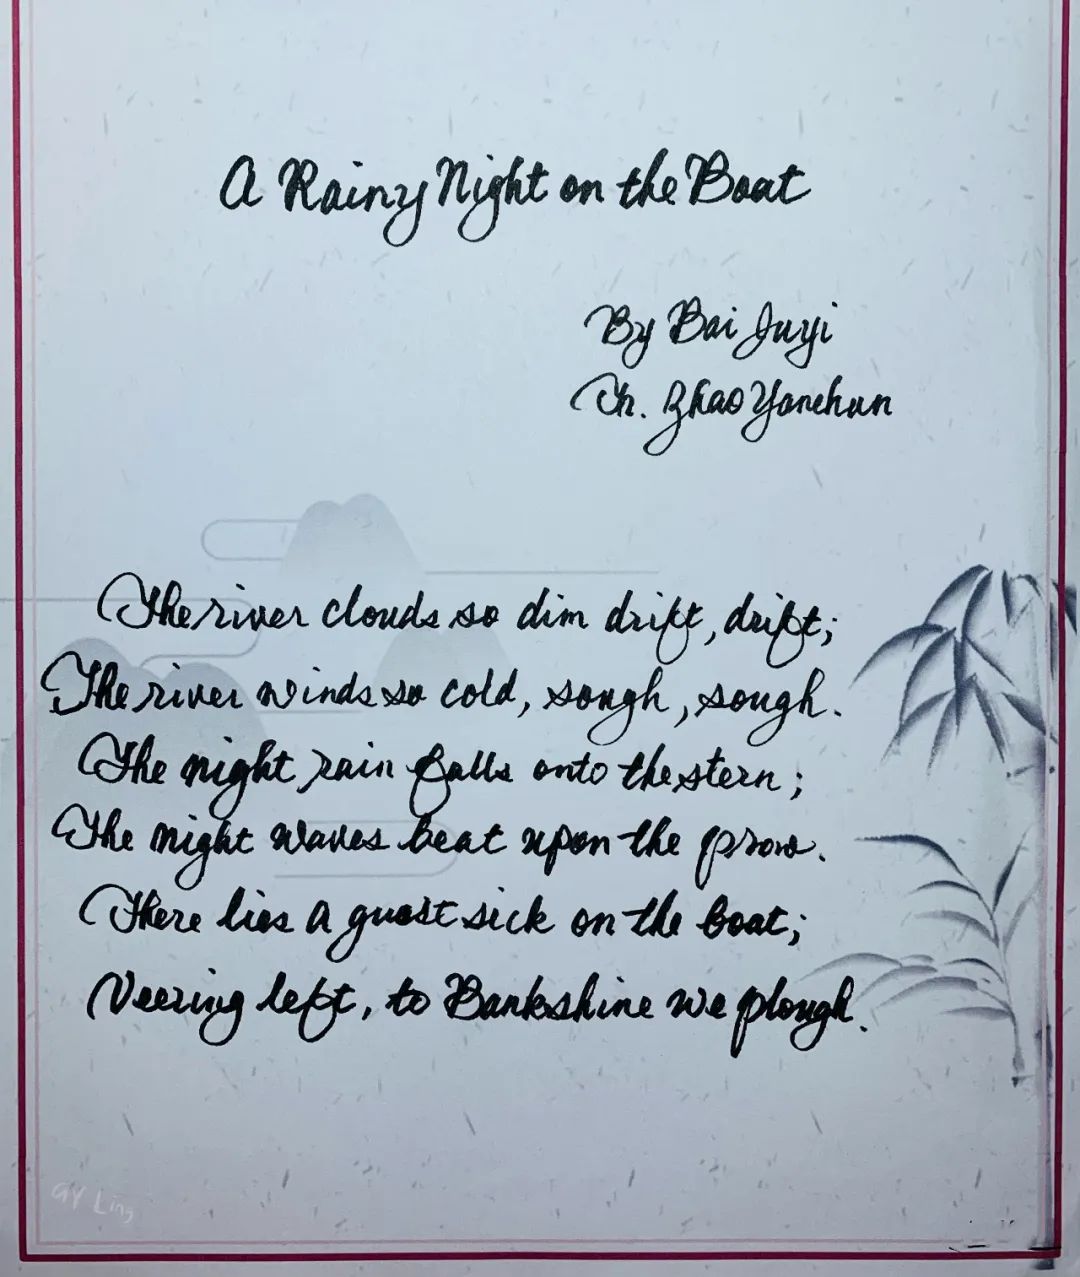 A Rainy Night on the Boat
By Bai Juyi
Tr. Zhao Yanchun
The river clouds so dim drift, drift;
The river winds so cold, sough, sough.
The night rain falls onto the stern;
The night waves beat upon the prow.
There lies a guest sick on the boat;
Veering left, to Bankshine we plough.
GY Ling